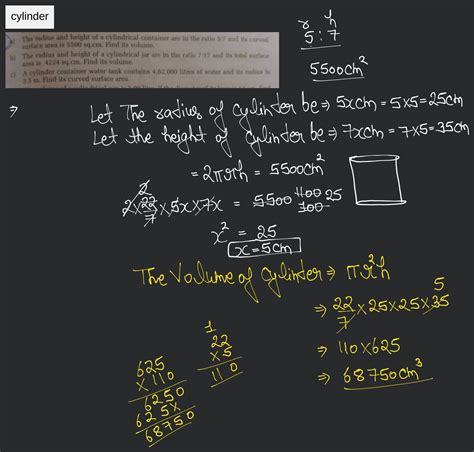 cylinder
The radius and height of a cylindrical container are in the ratio 5:7 and its curved
surface area is 5500 sq.cm. Find its volume.
b) The radius and height of a cylindrical jar are in the ratio 7:17 and its total surface
area is 4224 sq.cm. Find its volume.
c) A cylinder container water tank contains 4,62,000 litres of water and its radius is
3.5 m. Find its curved surface area.
r h
5:7
5500cm²
⇒ Let The radius of cylinder be ⇒ 5xcm = 5x5=25cm
Let the height of cylinder be ⇒ 7xcm = 7x5=35cm
= 2πrh = 5500cm²
2
2x22/7 x5x x7x = 5500 1100 25
100
x² = 25
x=5cm
The Volume of cylinder ⇒ πr²h
5
⇒ 22/7 x25x25x35
⇒ 110x625
⇒ 68750cm³
1
22
x5
110
625
x110
6250
625x
68750